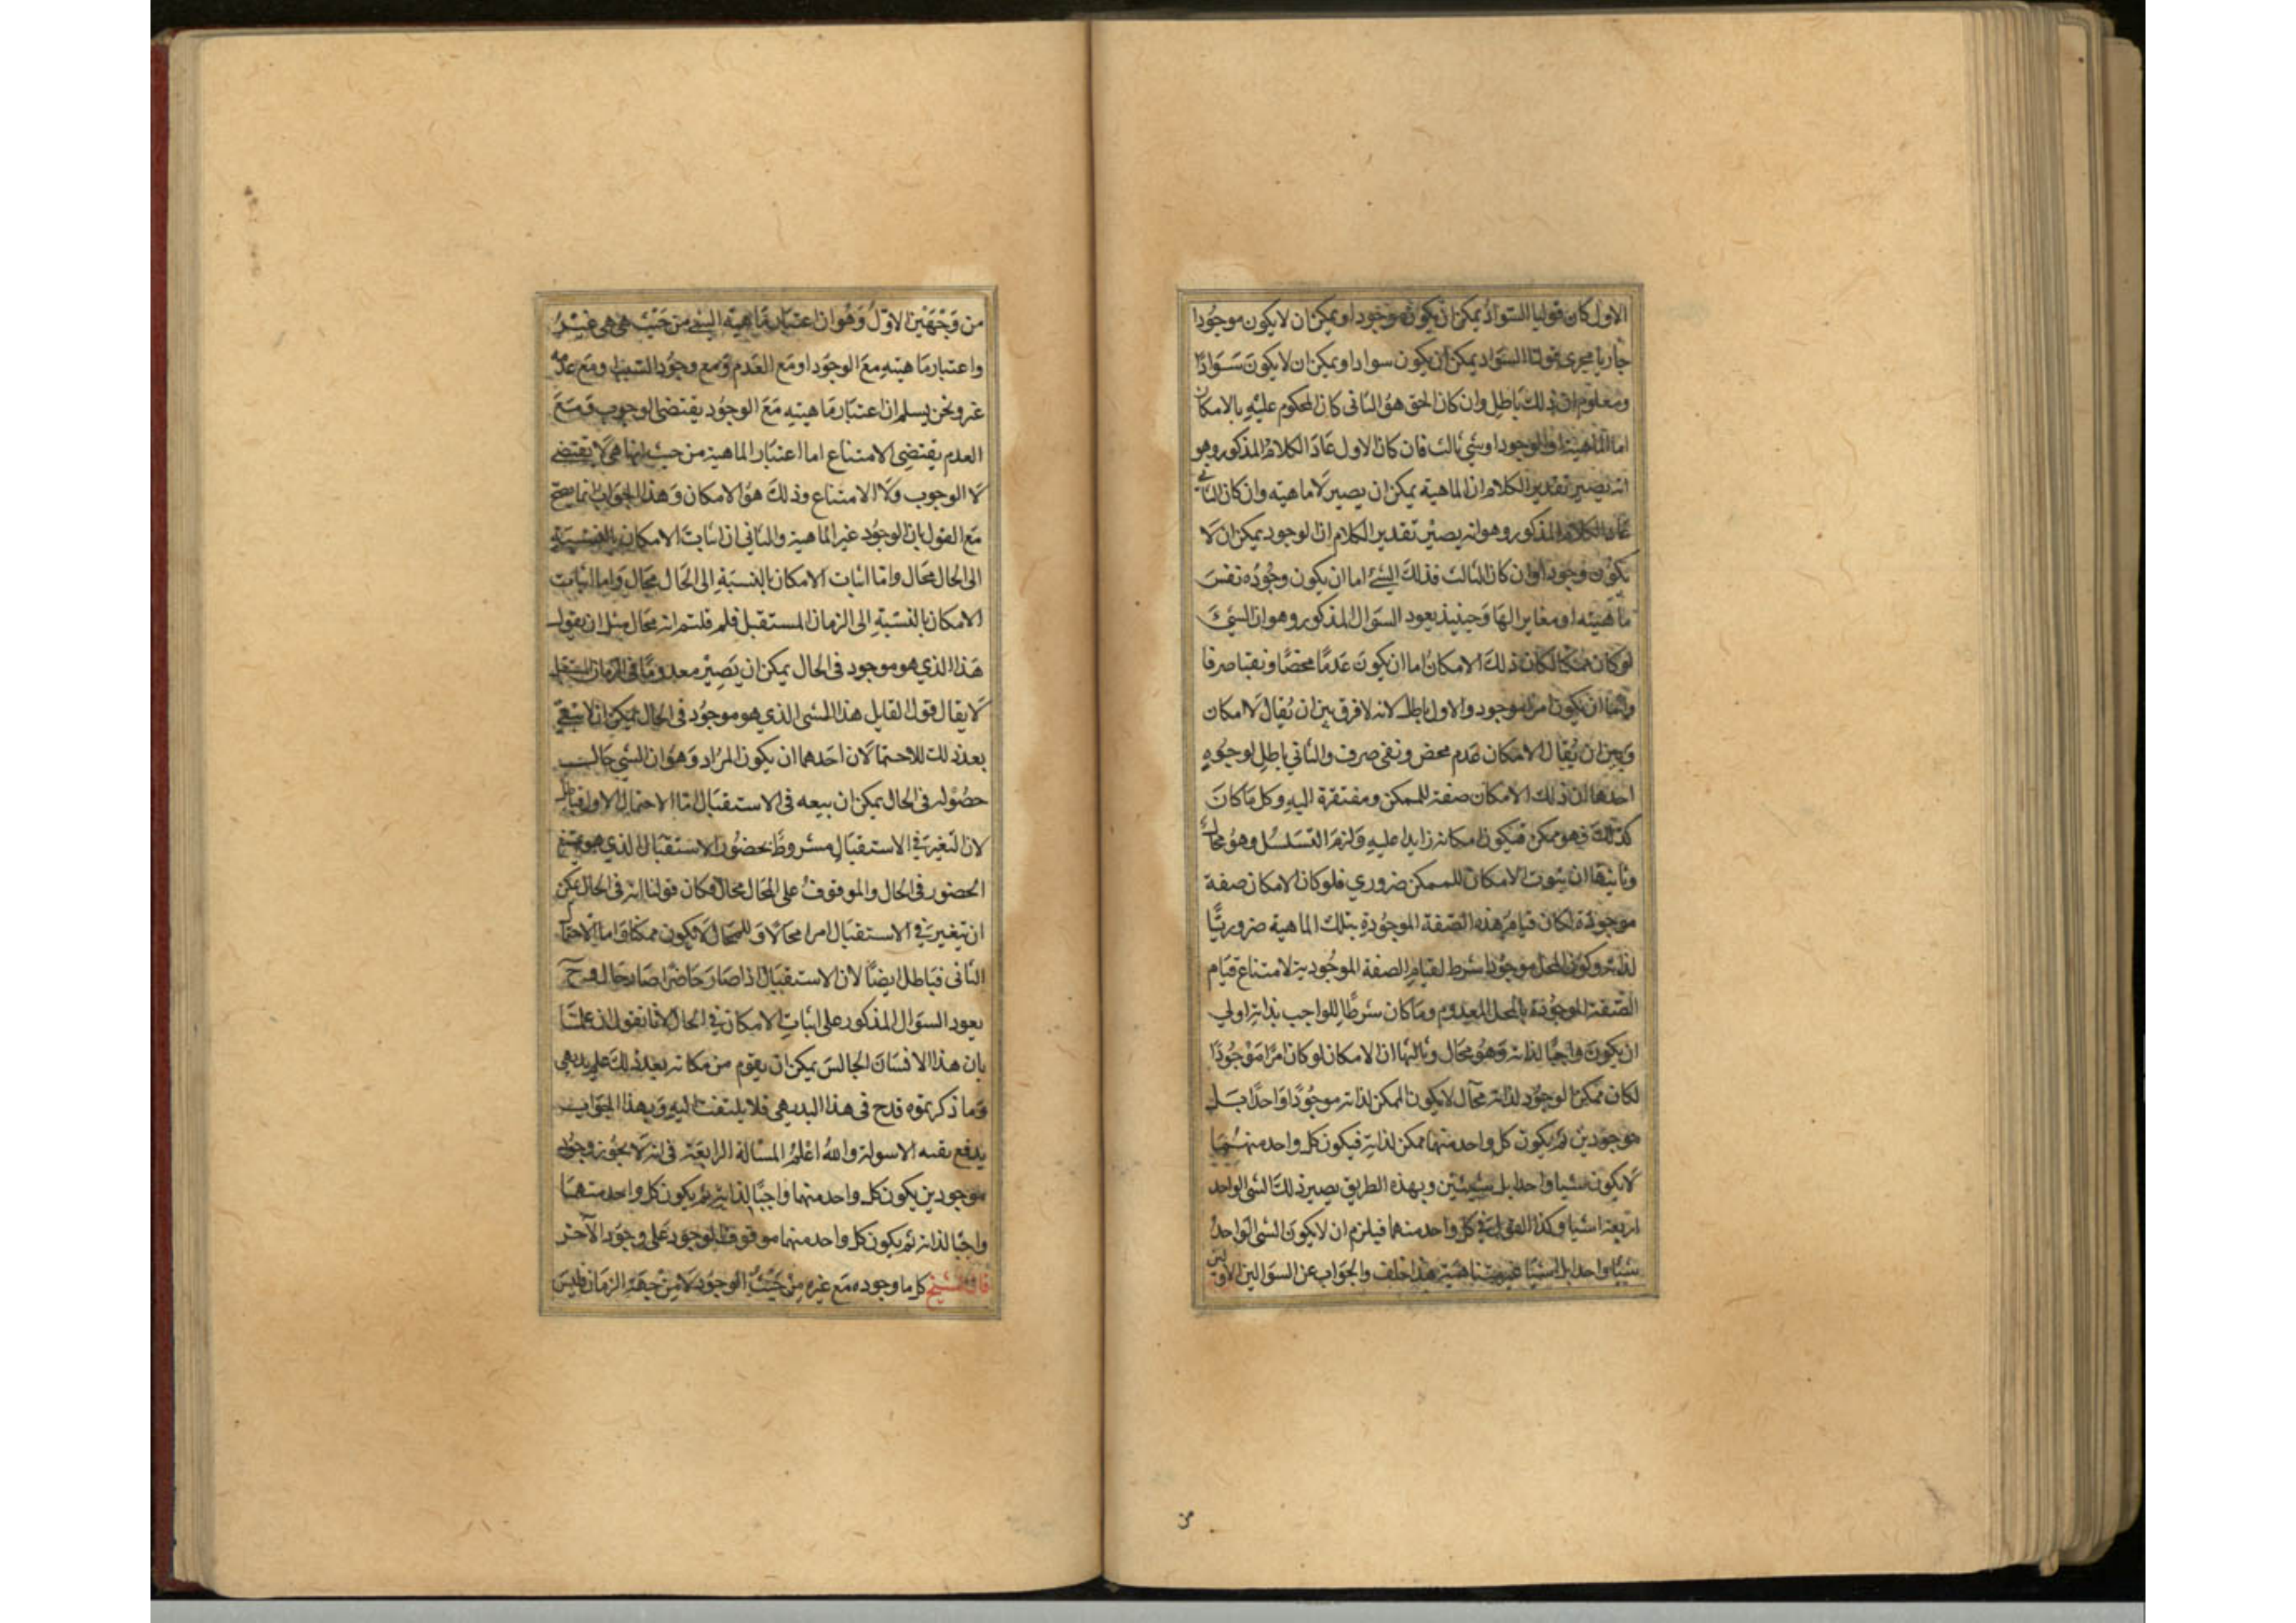 الاول كان قولنا السواد يمكن ان يكون موجودا ويمكن ان لا يكون موجودا
جاريا مجرى قولنا السواد يمكن ان يكون سوادا ويمكن ان لا يكون سَوَادًا
ومعلوم ان ذلك باطل وان كان الحق هو الثانى كان المحكوم عليه بالامكان
اما الماهية او الوجود او شي ثالث فان كان الاول عَادَ الكلام المذكور وهو
انه يصير تقدير الكلام ان الماهية يمكن ان يصير لا ماهيه وان كان الثاني
عاد الكلام المذكور وهو انه يصير تقدير الكلام ان الوجود يمكن ان لا
يكون وجودا وان كان الثالث فذلك الشئ اما ان يكون وجُودُه نفسَ
ماهيته او مغايرا لها وَحينيذ يعود السؤال المذكور وهو ان الشيءَ
لو كان ممكنا لكان ذلك الامكان اما ان يكون عَدمًا محضًا ونفيا صرفا
واما ان يكون امرا موجود والاول باطل لانه لا فرق بين ان يُقال لا امكان
وَبين ان يُقال الامكان عَدم محض ونفى صرف والثاني باطِل لوجوُهٍ
احدها ان ذلك الامكان صفة للممكن ومفتقرة اليهِ وكل مَا كانَ
كذلك فهو ممكن فيكون امكانه زايدا عليهِ وَلزمَ التسَلسُل وهوُ محال
وثانيها ان ثبوت الامكان للممكن ضروري فلو كان الامكان صفة
موجودة لكان قيام هذه الصفة الموجُودة بتلك الماهية ضروريًّا
لذاته وكون المحل موجودا شرط لقيام الصفة الموجُودية لامتناع قيَام
الصّفة الموجُودة بالمحل المعدوم ومَا كان شرطًا للواجب بذاته اولي
ان يكونَ واجبًا لذاته وَهوُ محال وثالثها ان الامكان لو كان امرًا مَوْجُودًا
لكان ممكن الوجوُد لذاته محال لا يكون الممكن لذاته موجُودًا وَاحدًا بَل
موجوُدين ثم يكون كل واحد منهما ممكن لذاته فيكون كل واحد منهُمَا
لا يكون شيا واحدا بل شيئين وبهذه الطريق يصير ذلك الشى الواحد
اربعة اشيا وكذا القول في كل واحد منهما فيلزم ان لا يكونَ الشى الوَاحدُ
شيئا واحدا بل اشيَا غير متناهية هذا خلف والجَواب عن السؤالين الاولين
من
من وَجْهَيْن الاوّلُ وَهُوَ ان اعتبَار مَاهيّة الشئ من حَيْث هى هى غيْرُ
واعتبار مَاهيّتهِ مَعَ الوجوَد او مَع العَدم وَمع وجوُد السَبب او مَع عدمه
غر ونحن يسلم ان اعتبَار مَاهيتهِ مَعَ الوجوُد يقتضى الوجوب وَمَعَ
العدم يقتضِى الامتناع اما اعتبار الماهية من حيث انها هى لا تقتضى
لا الوجوب ولَا الامتناع وذلكَ هوُ الامكان وَهذا الجوَاب انما يصح
مَع القول بان الوجوُد غير الماهية والثاني ان اثبات الامكان بالنسبة
الى الحال محَال واما اثبات الامكان بالنسبَة الى الحَال محَال وَاما اثبات
الامكان بالنسَبَةِ الى الزمان المستقبل فلم قلتم انه محَال مثل ان يقول
هَذا الذي هو موجود فى الحال يمكن ان يَصِيْر معدومًا فى الزمان المستقبل
لا يقال قول القايل هذا الشى الذي هو موجوُد فى الحال يمكن ان لا يبقي
بعد ذلك للاحتمالان احَدهما ان يكون المُرَاد وَهوُ ان الشي حَالـ
حصُولهِ فى الحال يمكن ان بيعه فى الاستقبَال اما الاحتمال الاول فباطل
لان التغير في الاستقبَالِ مشروط بحضُور الاستقبَال الذي هو ممتنع
الحضور فى الحَال والموقوف على المحَال محال فكان قولنا انه فى الحال يمكن
ان تيغير في الاستقبَال امرا محَالا وَالمحَال لا يكون ممكنا وَاما الاحتمال
الثانى فبَاطل ايضًا لان الاستقبَال اذا صَارَ حَاضرًا صَارَ حَالا وح
يعود السؤال المذكور على اثباتِ الامكان في الحَال لانا نقول ان علمنَا
بان هذا الانسَان الجالسَ يمكن ان يقوم من مكانه بعد ذلكَ علم بديهى
وَما ذكرتموه قدح فى هذا البديهى فلا يلتفت اليهِ وَبهذا الجوَاب
يدفع بقيه الاسولة والله اعْلمُ المسْالة الرابعَة فى انه لا يجوُز وجوُد
موجودين يكون كل واحد منهما وَاجبًا لذاته ثم يكون كل واحد منهمَا
واجبًا لذاته ثم يكون كل واحد منهما موقوف الوجوَد عَلى وجوَد الآخر
قال الشيخ كل ما وجوده مَع غيره مِنْ حَيْثُ الوجوُد لا مِن جهَةِ الزمَان فليسَ